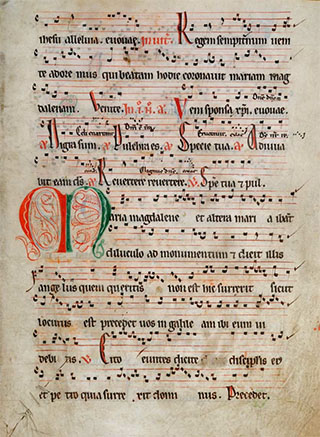 thesu alleluia. euouae. Inuit. Regem sempitnum uem
te adore mus qui beatam hodie coronauit mariam mag
dalenam. Uenite. In .i. Ueni sponsa xpi. euouae.
Nigra sum. Pulcra es. Specie tua. Aniua
uit eam cis. Reuertere reuertere. Spe tua & pul.
Maria magdalene et altera mari a ibāt
diluculo ad monumentum & dicit illis
ange lus quem queritis non est hic surrexit sicut
locutus est precedet uos in galile am ibi eum ui
debi tis. Cito euntes dicite discipulis ei
et pe tro quia surre xit domi nus. Precedet.